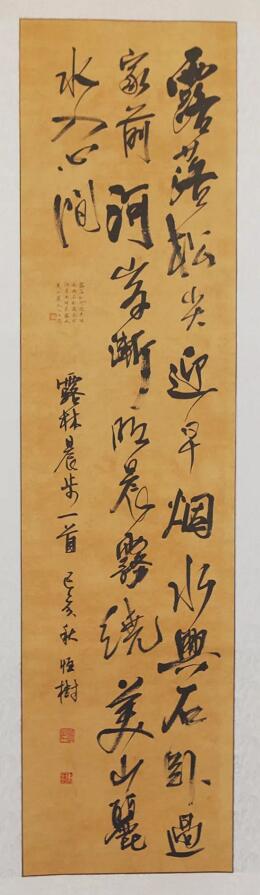 露落松尖迎早烟水與石卧過
家前河岸漸晨霧繞美山麗
水入心間
露林晨步一首 己亥秋 恆樹